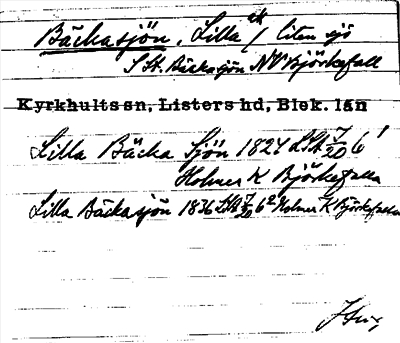 Bäckasjön, Lilla ek / liten sjö
S St. Bäckasjön NV Björkefall
Kyrkhults sn, Listers hd, Blek. län
Lilla Bäcka Sjön 1824 LSA 7/20 6¹
Holmer K Björkefalla
Lilla Bäckasjön 1836 LSA 7/20 6² Holmer K Björkefalla